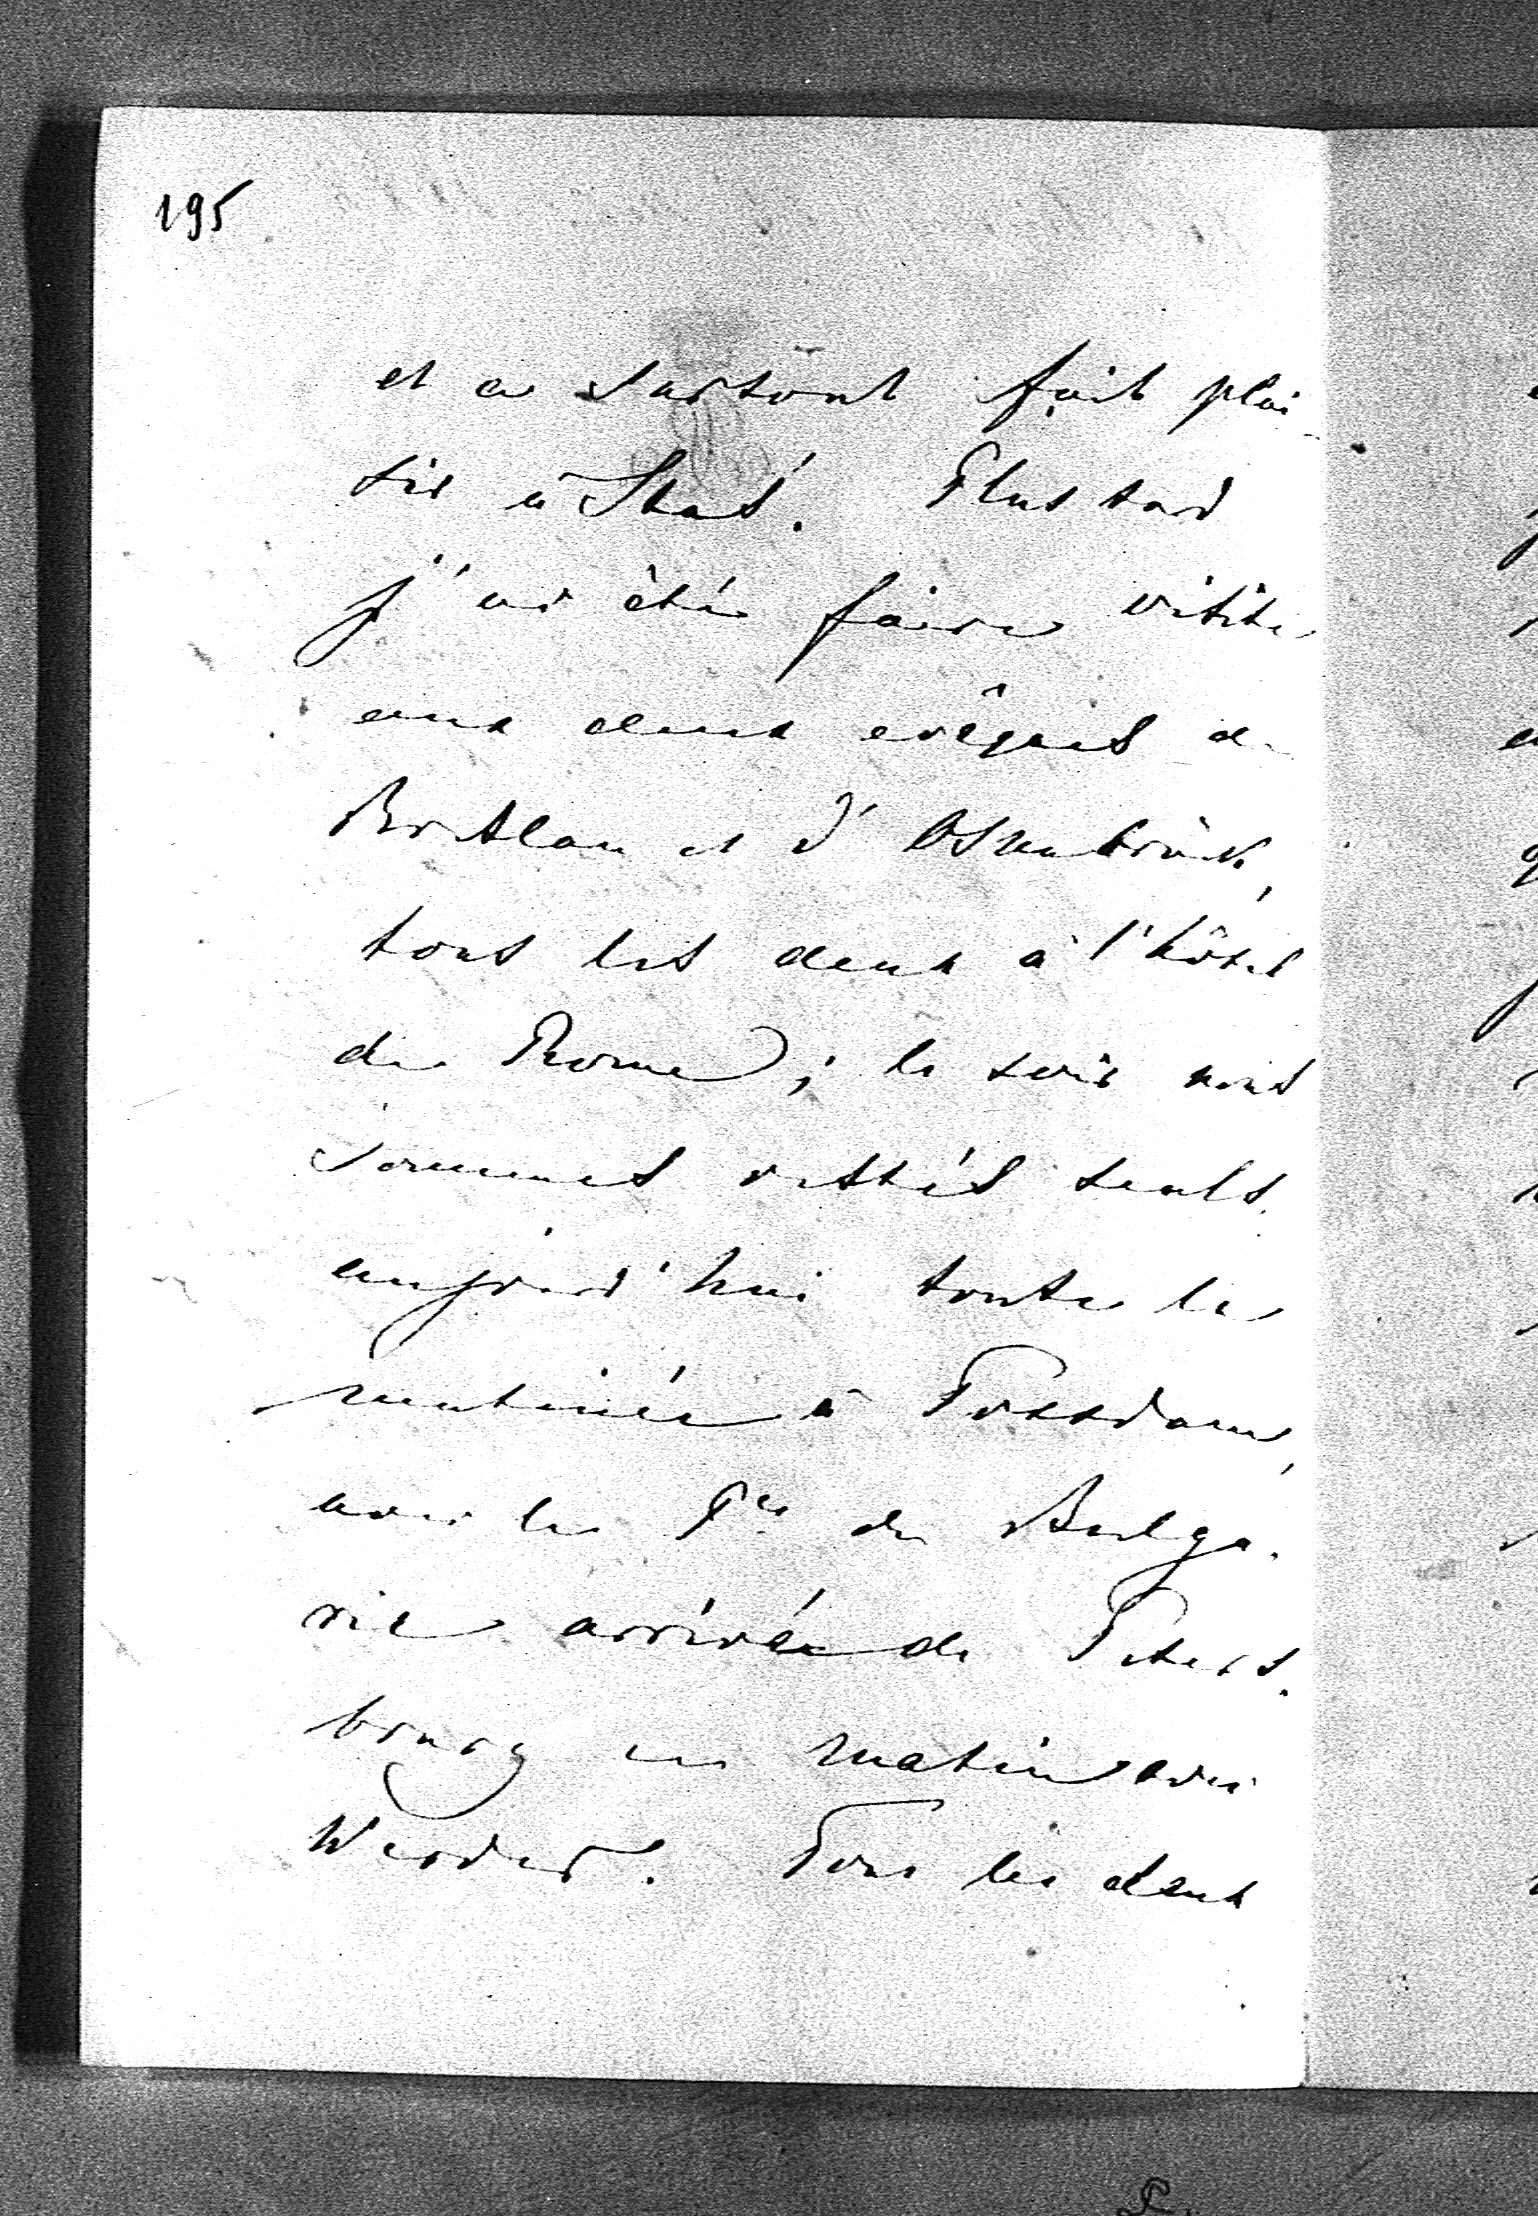 195
et a surtout fait plai-
sir à Stas'. Plus tard
j'ai été faire visite
aux deux evêques de
Breslau et d'Osnabrück,
tous les deux à l'hôtel
de Rome; le soir nous
sommes restés seuls.
aujourd'hui toute la
matinée à Potsdam,
avec le Pce de Bulga-
rie arrivée de Peters-
bourg ce matin avec
Werder. Tous les deux